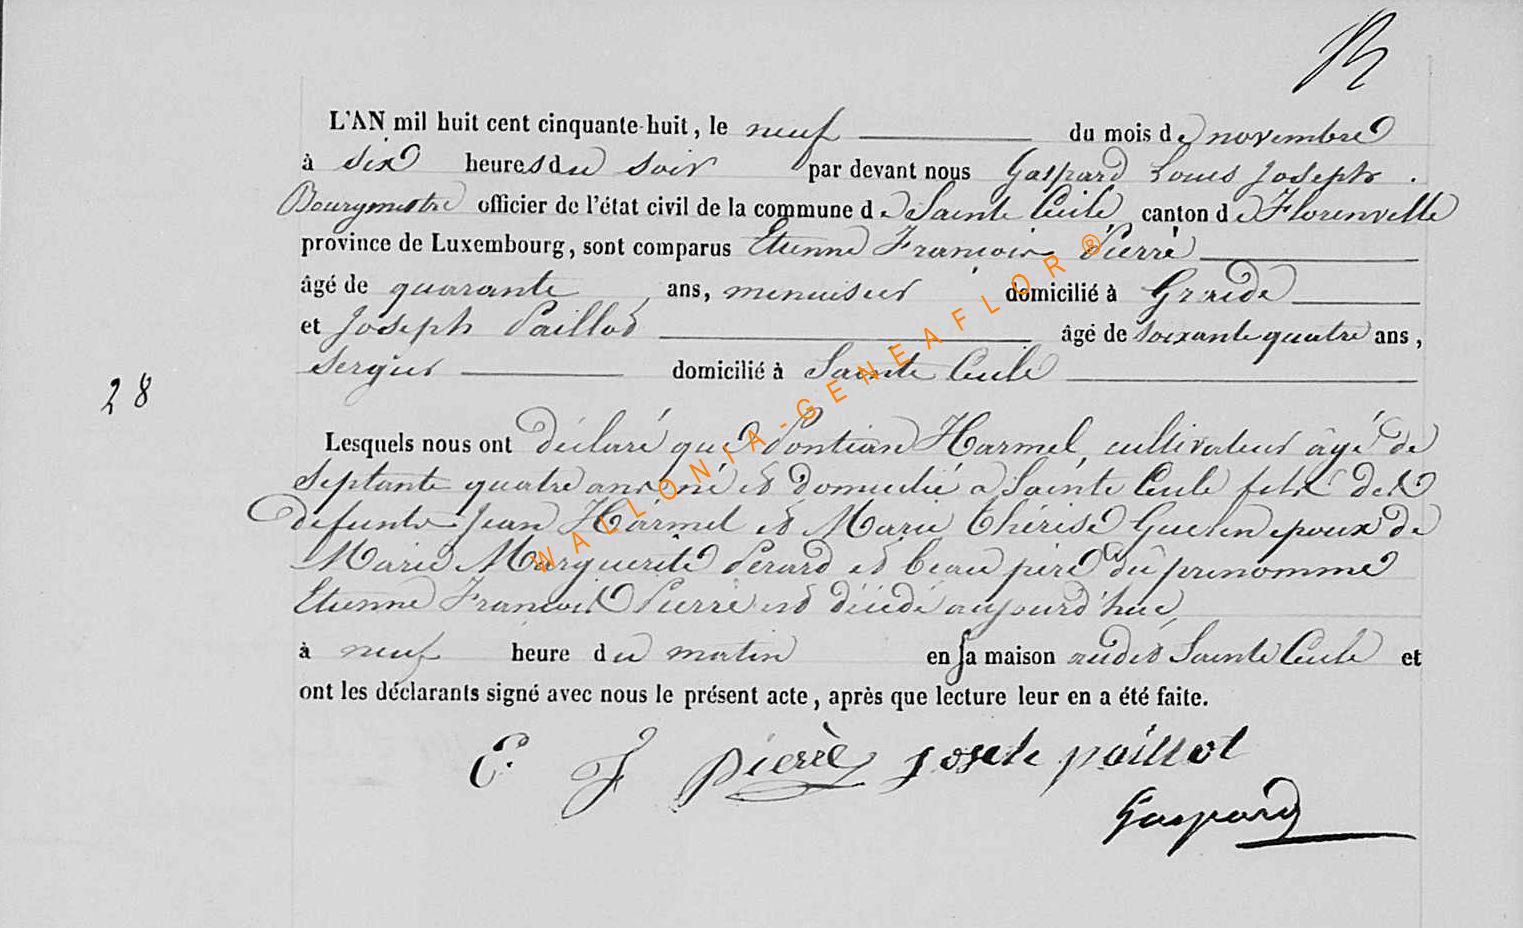 L'AN mil huit cent cinquante-huit, le neuf du mois de novembre
à six heures du soir par devant nous Gaspard Louis Joseph
Bourgmestre officier de l'état civil de la commune de Sainte Cecile canton de Florenville
province de Luxembourg, sont comparus Etienne François Pierrè
âgé de quarante ans, menuisier domicilié à Graide
et Joseph Paillot âgé de soixante quatre ans,
domicilié à Sainte Cecile
28
Lesquels nous ont déclaré que Pontian Harmel, cultivateur âgé de
septante quatre ans, né et domicilié a Sainte Cecile fils des
defunts Jean Harmel et Marie thérèse epoux de
Marie Marguerite Perard et beau père du prenommé
Etienne François Pierre est décédé aujourd'hui
à neuf heure du matin en sa maison audit Sainte Cecile et
ont les déclarants signé avec nous le présent acte, après que lecture leur en a été faite.
E. F pierrè joseh paillot
Gaspard
WALLONIA-GENEAFLOR®